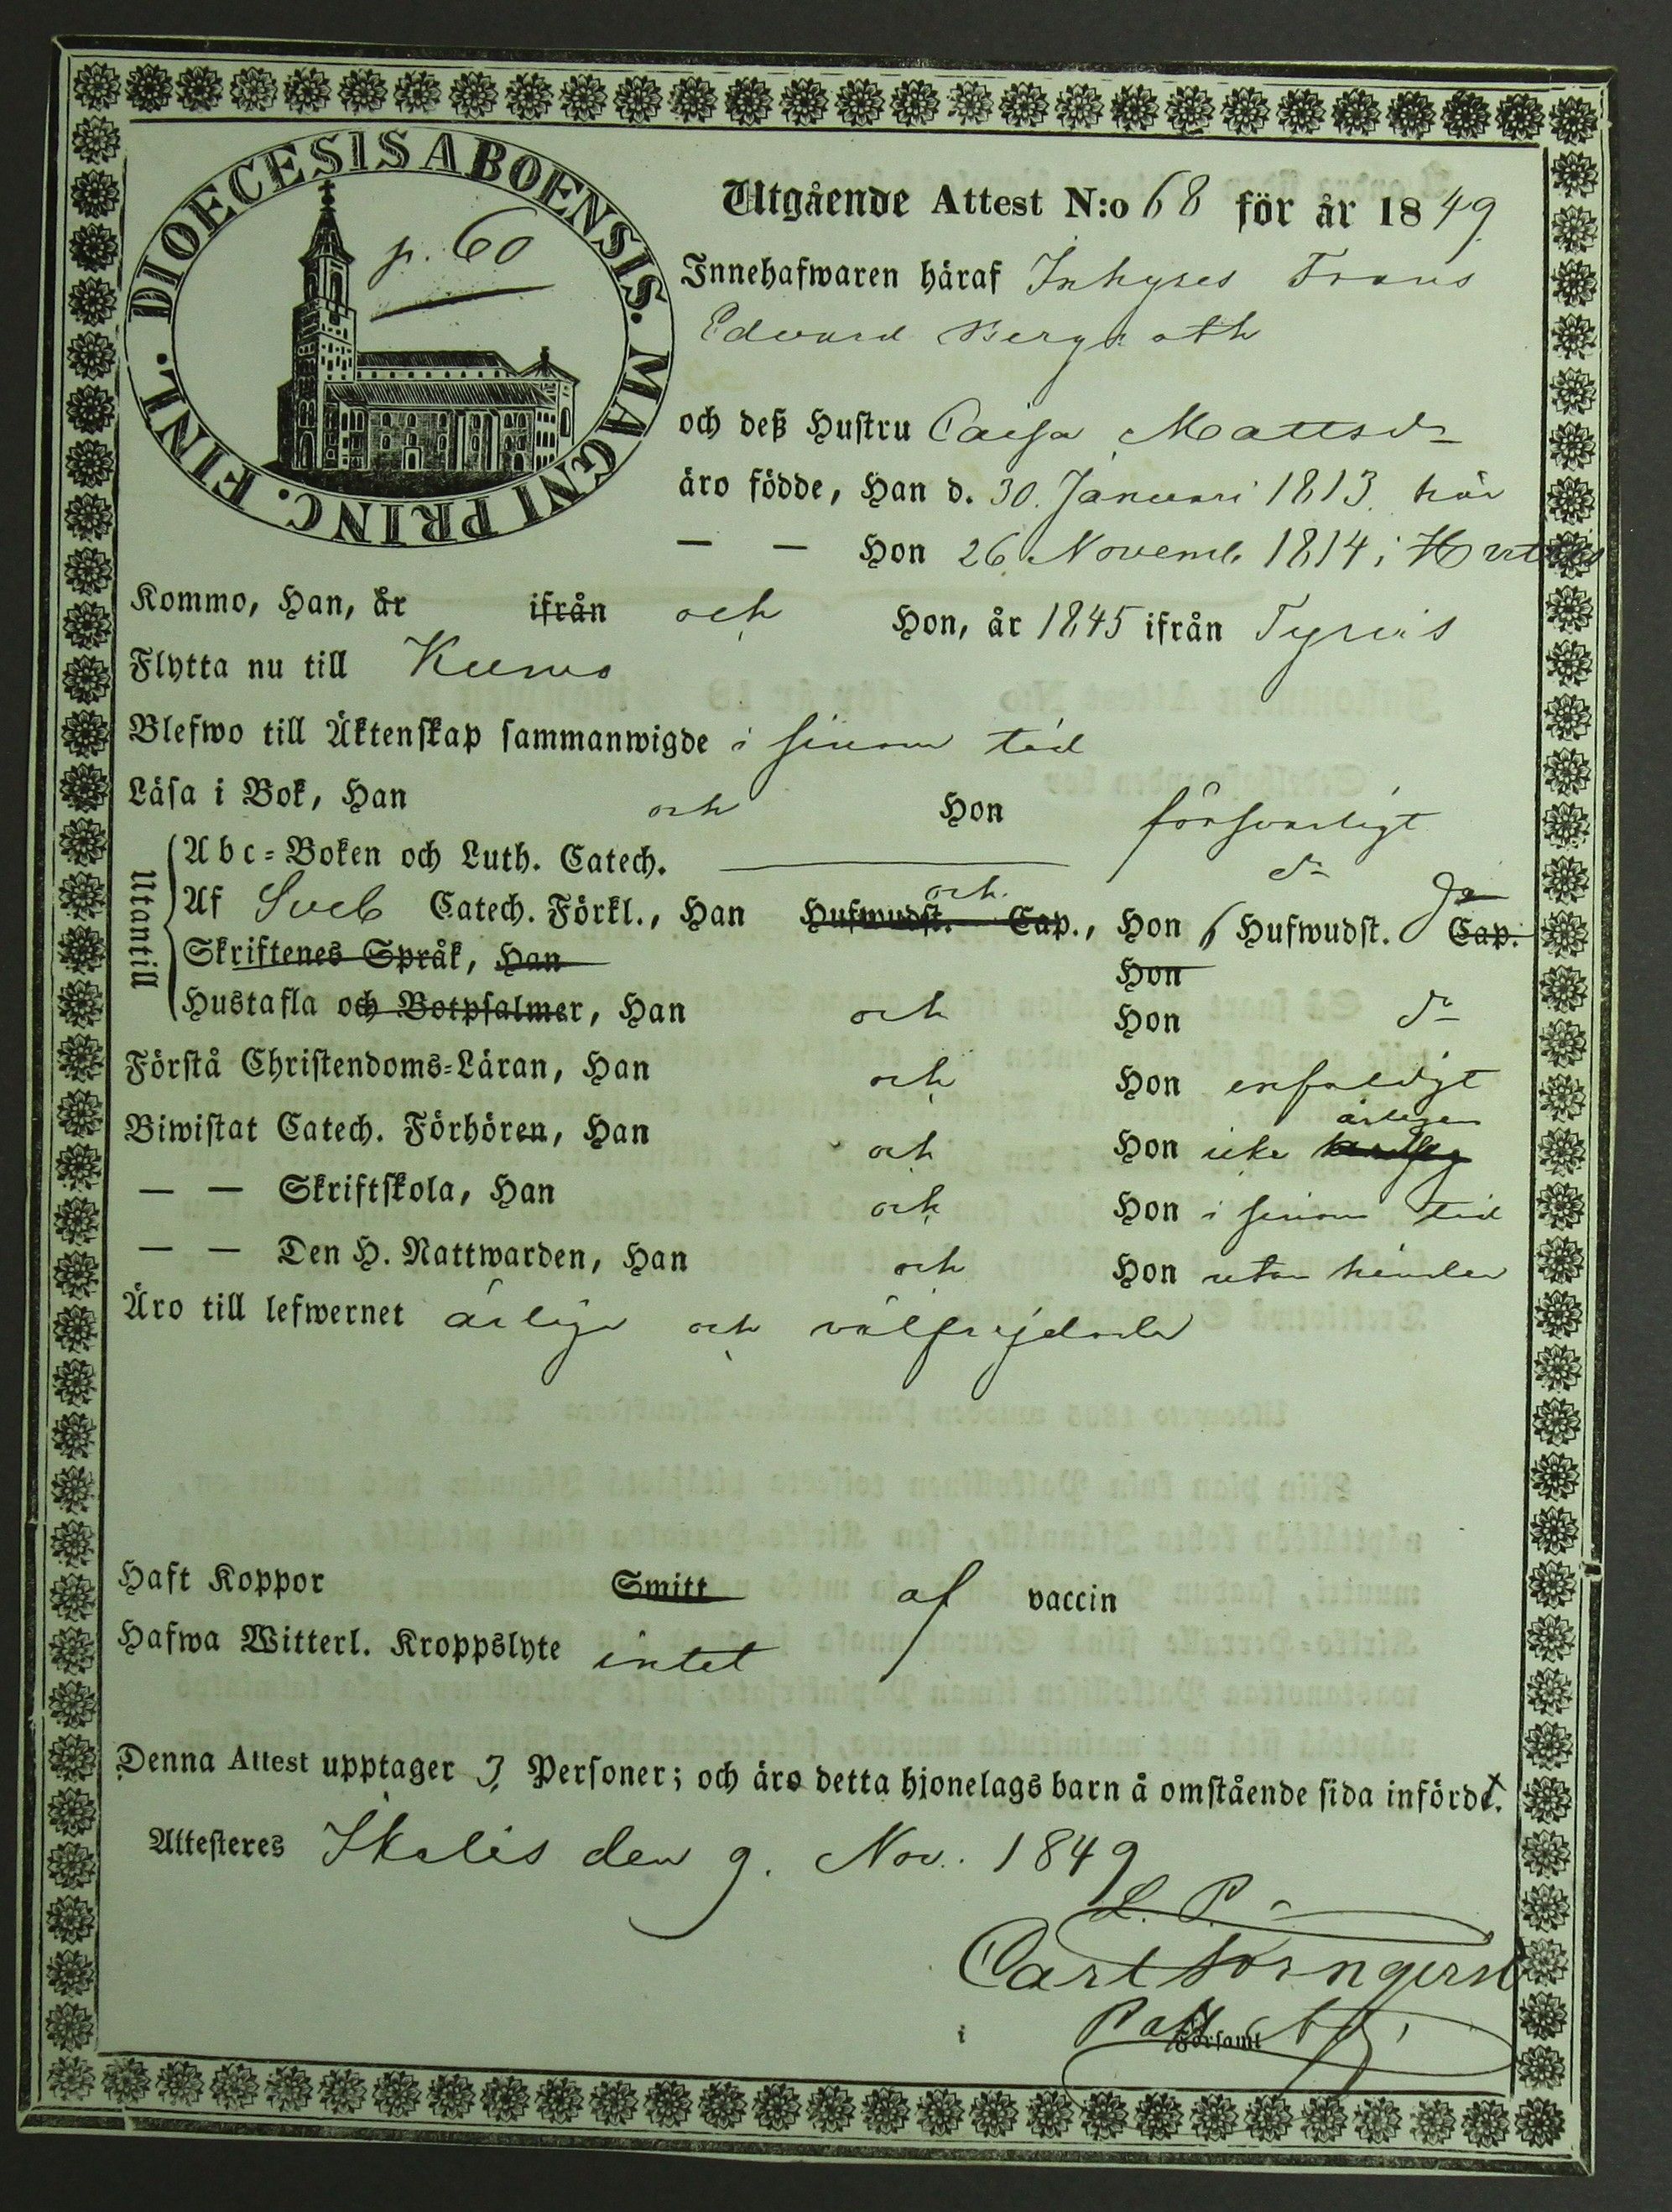 DIOECESIS ABOENSIS. MAGNI PRINC. FINL.
p. 60
Utgående Attest N:o 68 för år 1849.
Innehafwaren häraf Inhyses Frans
Edvard Bergroth
och deß Hustru Caisa Mattsdr
äro födde, Han d. 30. Januari 1813. här
— — Hon 26 Novemb. 1814 i
Kommo, Han, år ifrån och Hon, år 1845 ifrån Tyrvis
Flytta nu till Kumo
Blefwo till Äktenskap sammanwigde i sinom tid
Läsa i Bok, Han och Hon försvarligt
Utantill
Abc-Boken och Luth. Catech. do
Af Sveb Catech. Förkl., Han Hufwudst. och Cap., Hon 6 Hufwudst. Cap.
Skriftenes Språk, Han Hon
Hustafla och Botpsalmer, Han och Hon do
Förstå Christendoms-Läran, Han och Hon enfaldigt
Biwistat Catech. Förhören, Han och Hon icke årligen
— — Skriftskola, Han och Hon i sinom tid
— — Den H. Nattwarden, Han och Hon utan hinder
Äro till lefwernet ärliga och välfrejdade
Haft Koppor Smitt af vaccin
Hafwa Witterl. Kroppslyte intet
Denna Attest upptager 3 Personer; och äro detta hjonelags barn å omstående sida infördt.
Attesteres Ikalis den 9. Nov. 1849
L. P.
Carl
i Församl